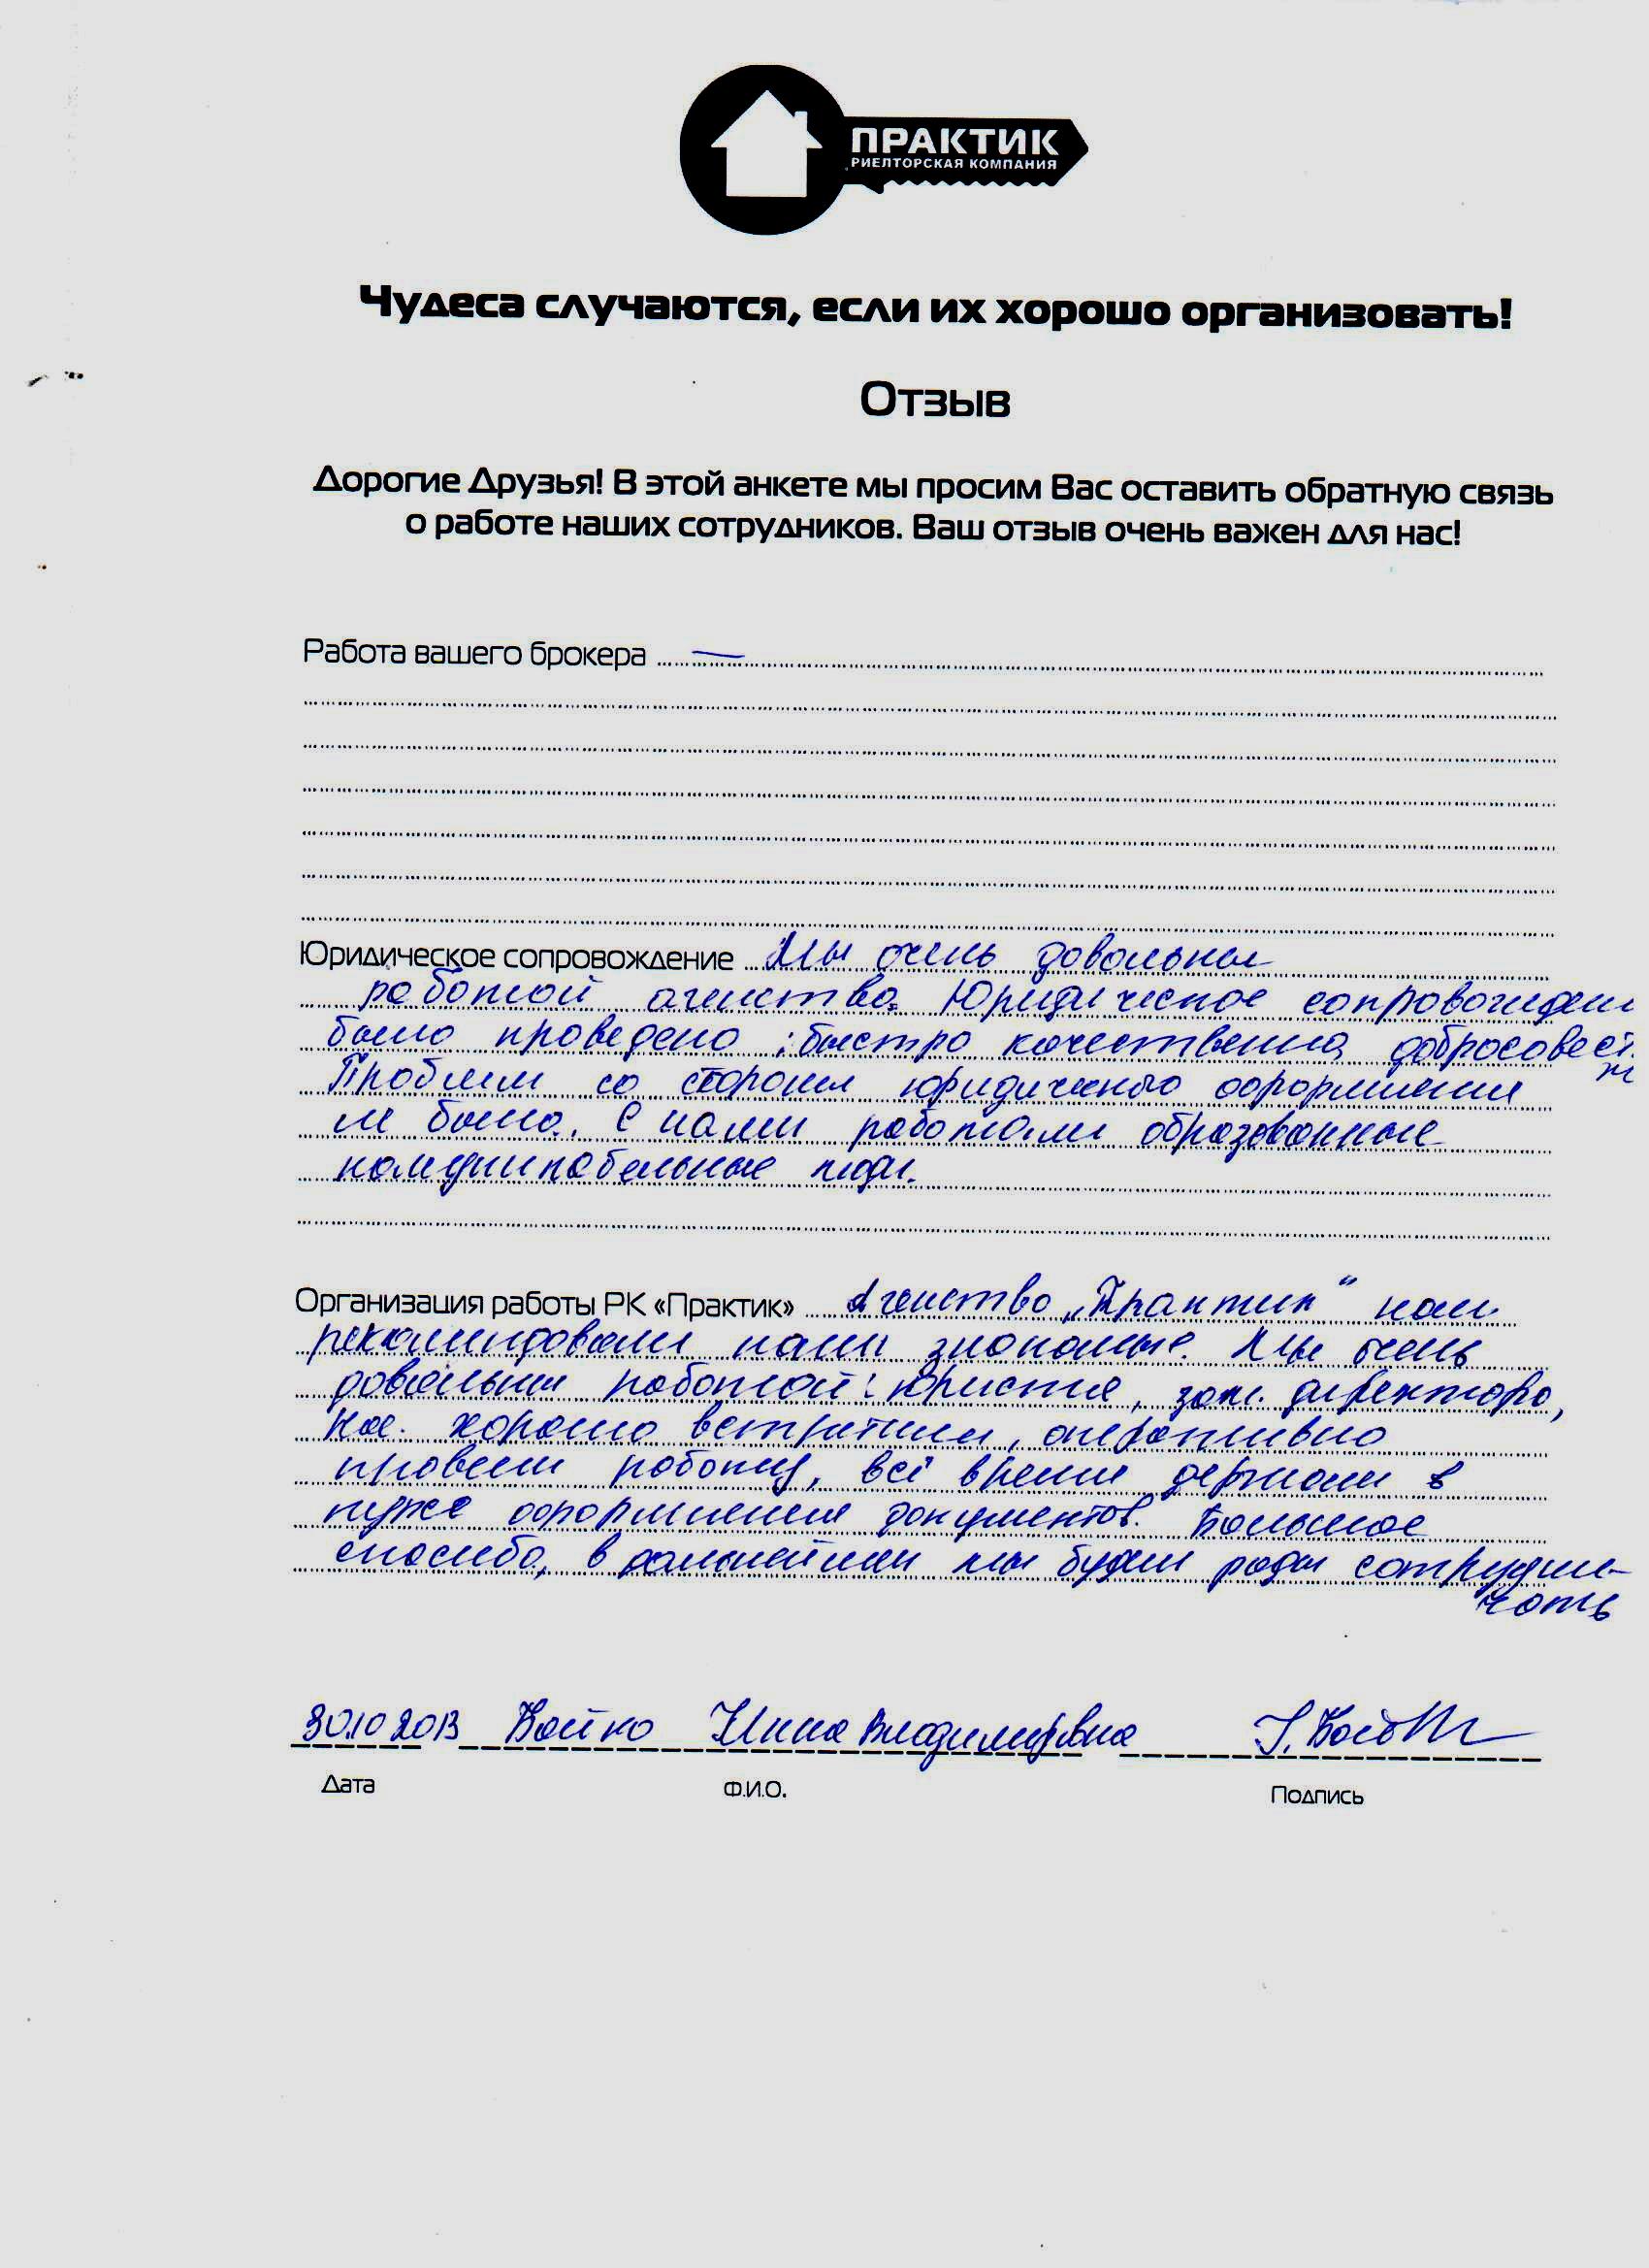 ПРАКТИК
РИЕЛТОРСКАЯ КОМПАНИЯ
Чудеса случаются, если их хорошо организовать!
Отзыв
Дорогие Друзья! В этой анкете мы просим Вас оставить обратную связь
о работе наших сотрудников. Ваш отзыв очень важен для нас!
Работа вашего брокера —
Юридическое сопровождение Мы очень довольны
работой агенства. Юридическое сопровожден
было проведено : быстро качественно, добросовест
н
Проблем со стороны юридичекого оформления
не было. С нами работали образованные
комуникабельные люди.
Организация работы РК «Практик» Агенство „Практик“ нам
рекомендовали наши знакомые. Мы очень
довольны работой: юриста, зам. директора,
нас хорошо встретили, оперативно
провели работу, всё время держали в
курсе оформления документов. Большое
спасибо, в дальнейшем мы будем рады сотрудни-
чать
30.10 2013 Бойко Инна Владимировна
Дата Ф.И.О. Подпись